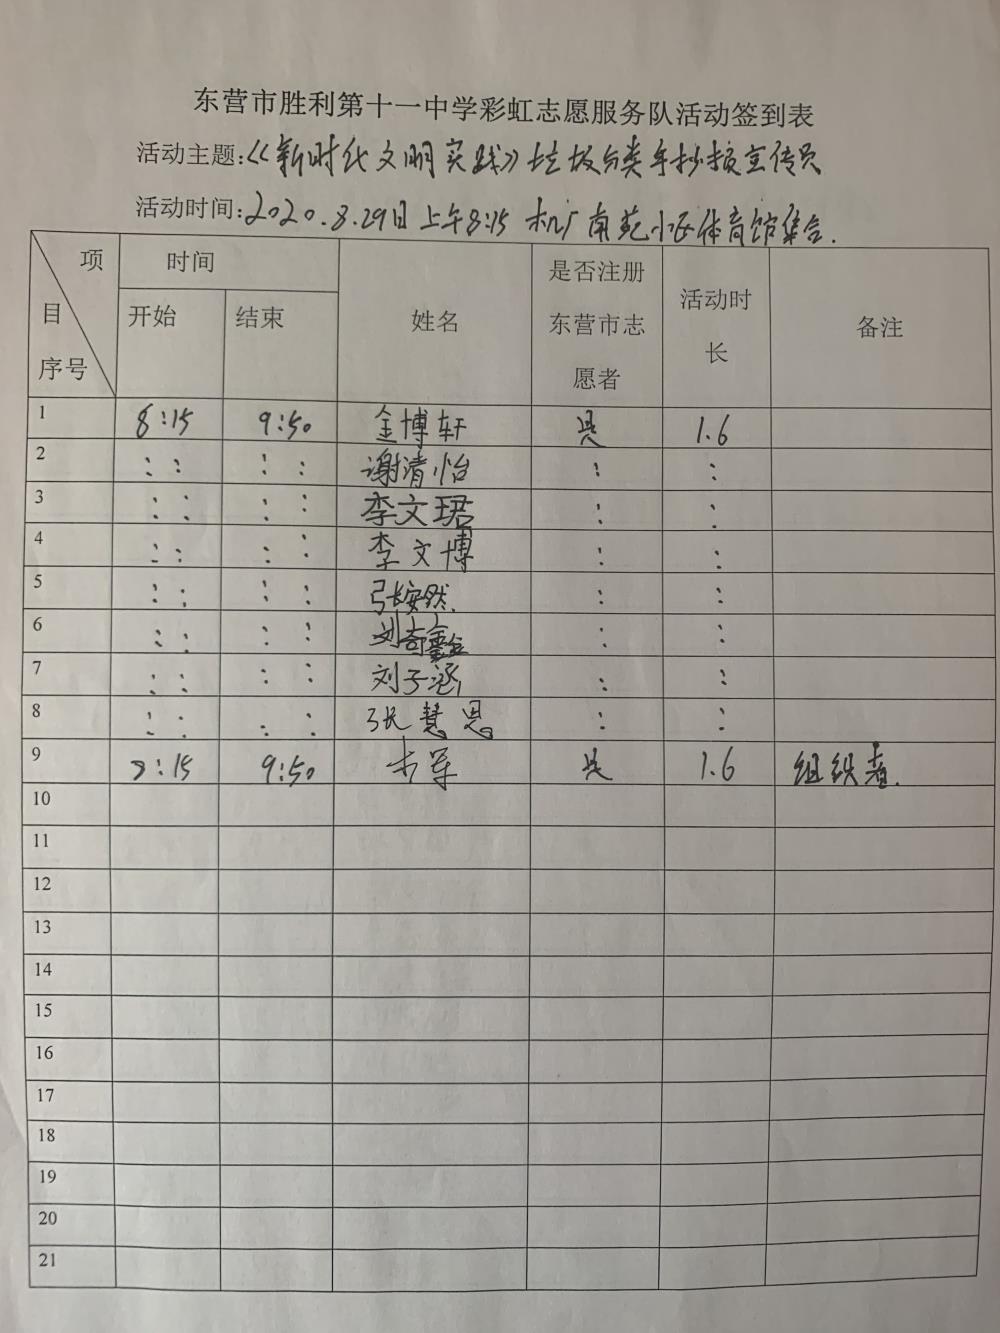 东营市胜利第十一中学彩虹志愿服务队活动签到表
活动主题:《新时代文明实践》垃圾分类手抄报宣传员
活动时间:2020.8.29日上午8:15 机厂南苑小区体育馆集合.
项 时间 姓名 是否注册东营市志愿者 活动时长 备注
目 开始 结束
序号
1 8:15 9:50 金博轩 是 1.6
2 : : : : 谢清怡 : :
3 : : : : 李文珺 : :
4 : : : : 李文博 : :
5 : : : : 张安然. : :
6 : : : : 刘奇鑫 : :
7 : : : : 刘子涵 : :
8 : : : : 张慧恩 : :
9 8:15 9:50 是 1.6 组织者.
10
11
12
13
14
15
16
17
18
19
20
21